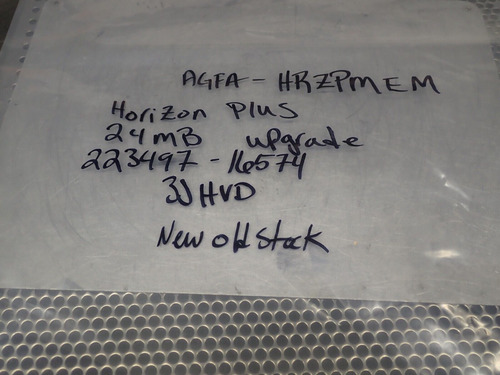 AGFA - HRZPMEM
Horizon Plus
24MB upgrade
223497 - 16574
3JHVD
New old Stock